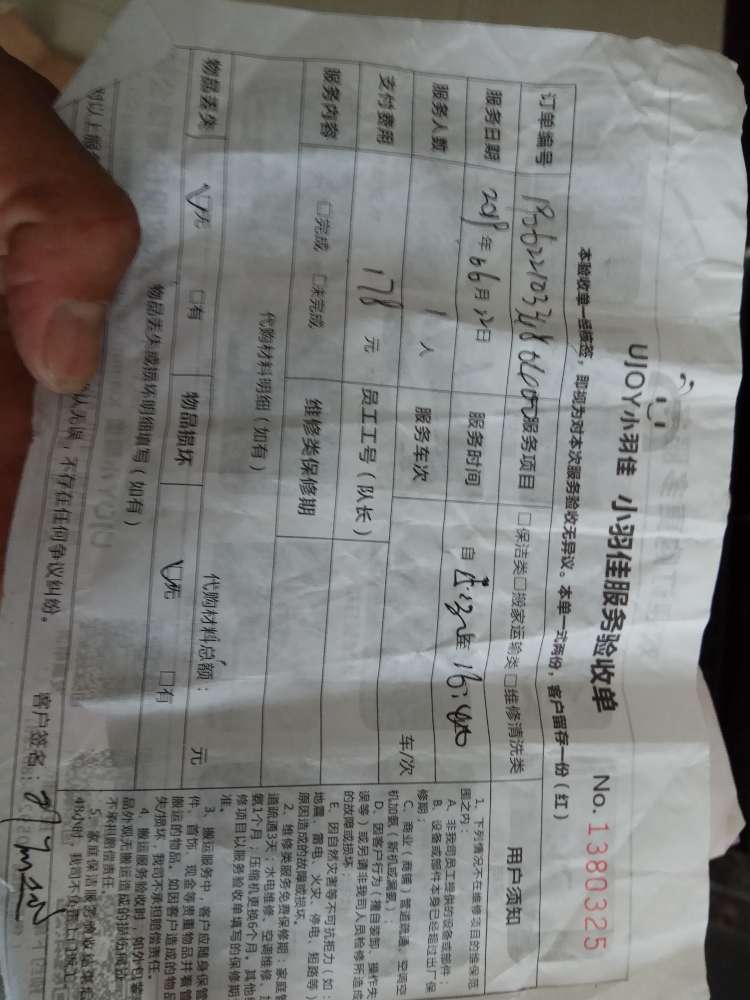 UJOY小羽佳 小羽佳服务验收单 No. 1380325
本验收单一经核签，即视为对本次服务验收无异议。本单一式两份，客户留存一份（红）
订单编号 服务项目 □保洁类□搬家运输类□维修清洗类
服务日期 2018年06月12日 服务时间 自 至 16:40
服务人数 1 人 服务车次 车/次
支付费用 178 元 员工工号（队长）
服务内容 □完成 □未完成 维修类保修期
代购材料明细（如有） 代购材料总额： 元
物品丢失 □无 □有 物品损坏 □无 □有
物品丢失或损坏明细填写（如有）
对以上服 认无误，不存在任何争议纠纷。 客户签名：
用户须知
1、下列情况不在维修项目的维保范
围之内：
A、非我司员工提供的设备或部件；
B、设备或部件本身已经超过出厂保
修期；
C、商业（商铺）管道疏通、空调空
机加氨（新机或漏要。）；
D、因客户行为（擅自装卸、操作失
误等）或另请非我司人员检修所造成
的故障或损坏；
E、因自然灾害等不可抗拒力（如：
地震、雷电、火灾、停电、短路等）
原因造成的故障或损坏。
2、维修类服务免费保修期：家庭管
道疏通3天；水电维修、空调维修、加
氨1个月；压缩机更换6个月。其他维
修项目以服务验收单填写的保修期
准。
3、搬运服务中，客户应随身保管
件、首饰、现金等贵重物品并看管
搬运的物品。如因客户造成的物品
失/损坏，我司不承担赔偿责任。
4、搬运服务验收时，如外包装
品外观无搬运造成的损伤痕迹
不承担赔偿责任。
5、家庭保洁服务验收后
48小时，我司不负责上门返工